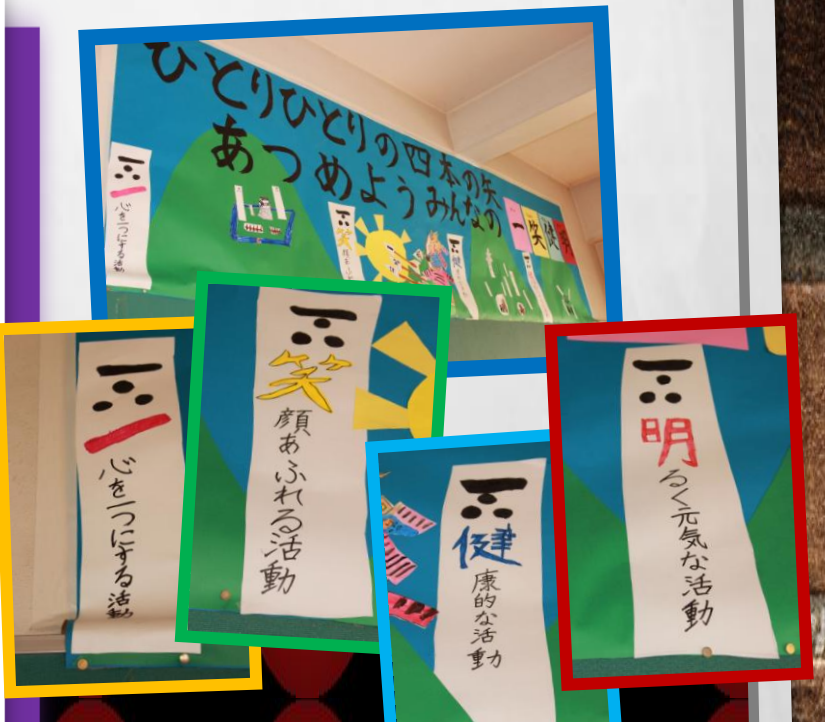 ひとりひとりの四本の矢
あつめようみんなの
一笑健明
一心を一つにする活動
笑顔あふ
健
一心を一つにする活動
笑顔あふれる活動
健康的な活動
明るく元気な活動